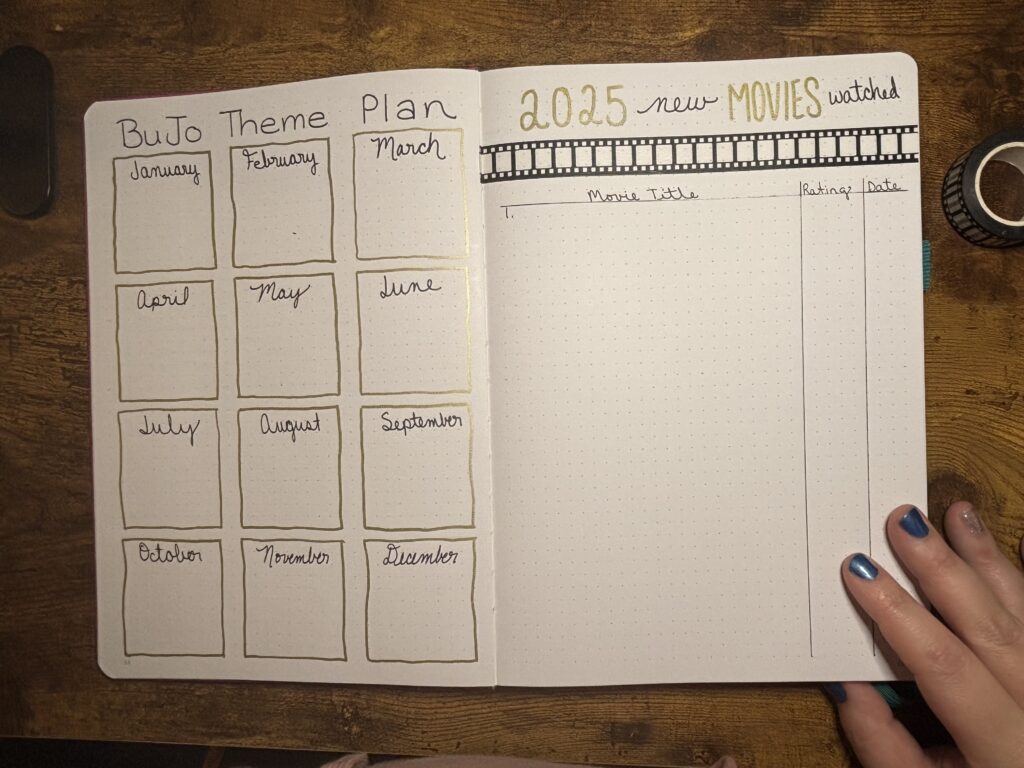 BuJo Theme Plan
January February March
April May June
July August September
October November December
2025 new MOVIES watched
Movie Title Rating? Date
1.